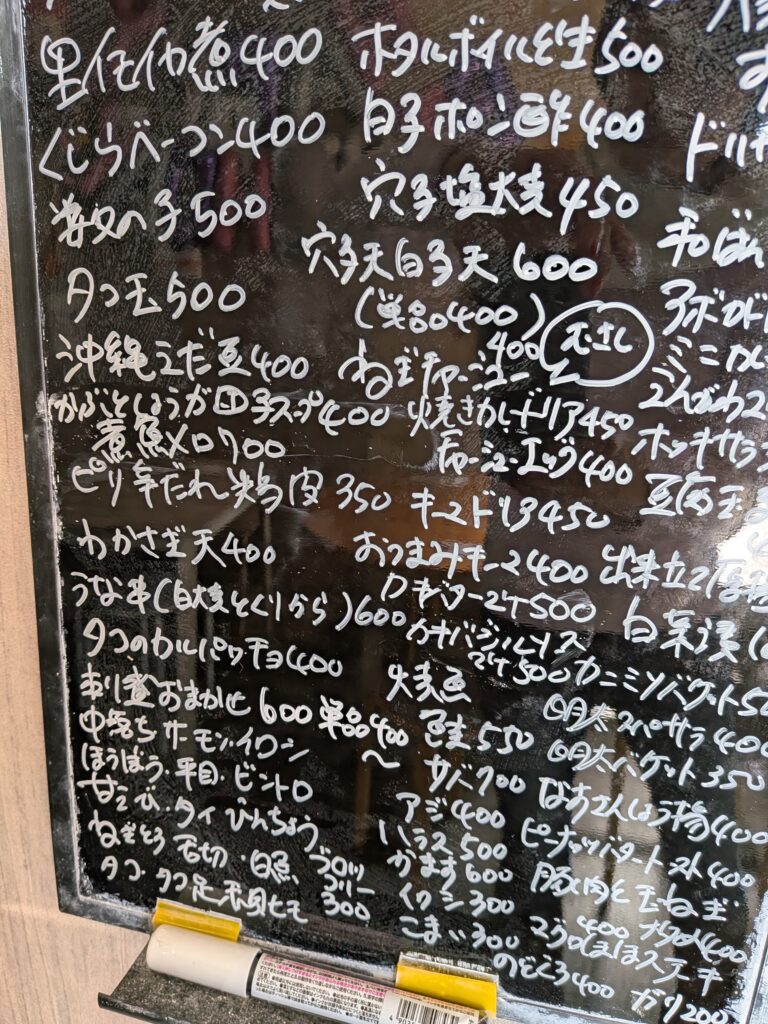 里任イカ煮400
くじらベーコン400
数の子500
タコ玉500
沖縄えだ豆400
かぶとしょうが団子スープ400
煮魚メロ700
ピリ辛だれ鶏皮350
わかさぎ天400
うな串(白焼とくりから)600
タコのカルパッチョ400
刺盛おまかせ600 単品400〜
中落ち サーモン・イワシ
ほうぼう・平目・ビントロ
甘エビ・タイ びんちょう
ねぎとろ
タコ・タコ足
300
ホタルボイルと生500
白子ポン酢400
穴子塩焼450
穴子天白子天600
(単品400)
ねぎチャーシュー400
焼きカレードリア450
チャーシューエッグ400
キーマドリア450
おつまみキーマ400
カキバター
500
カキバジルソース
500
焼魚
鮭550
サバ700
アジ400
ハラス500
かます600
イワシ300
こまい300
のどぐろ400
ドリ
手ばん
アボカド
ミニカ
ホッキサラ
出来立て
白菜漬
カニミソバゲット50
明太スパサラ400
明太バゲット350
400
ピーナッツバタートースト400
豚肉と玉ねぎ
400
マグロほほステーキ
400
ガリ200